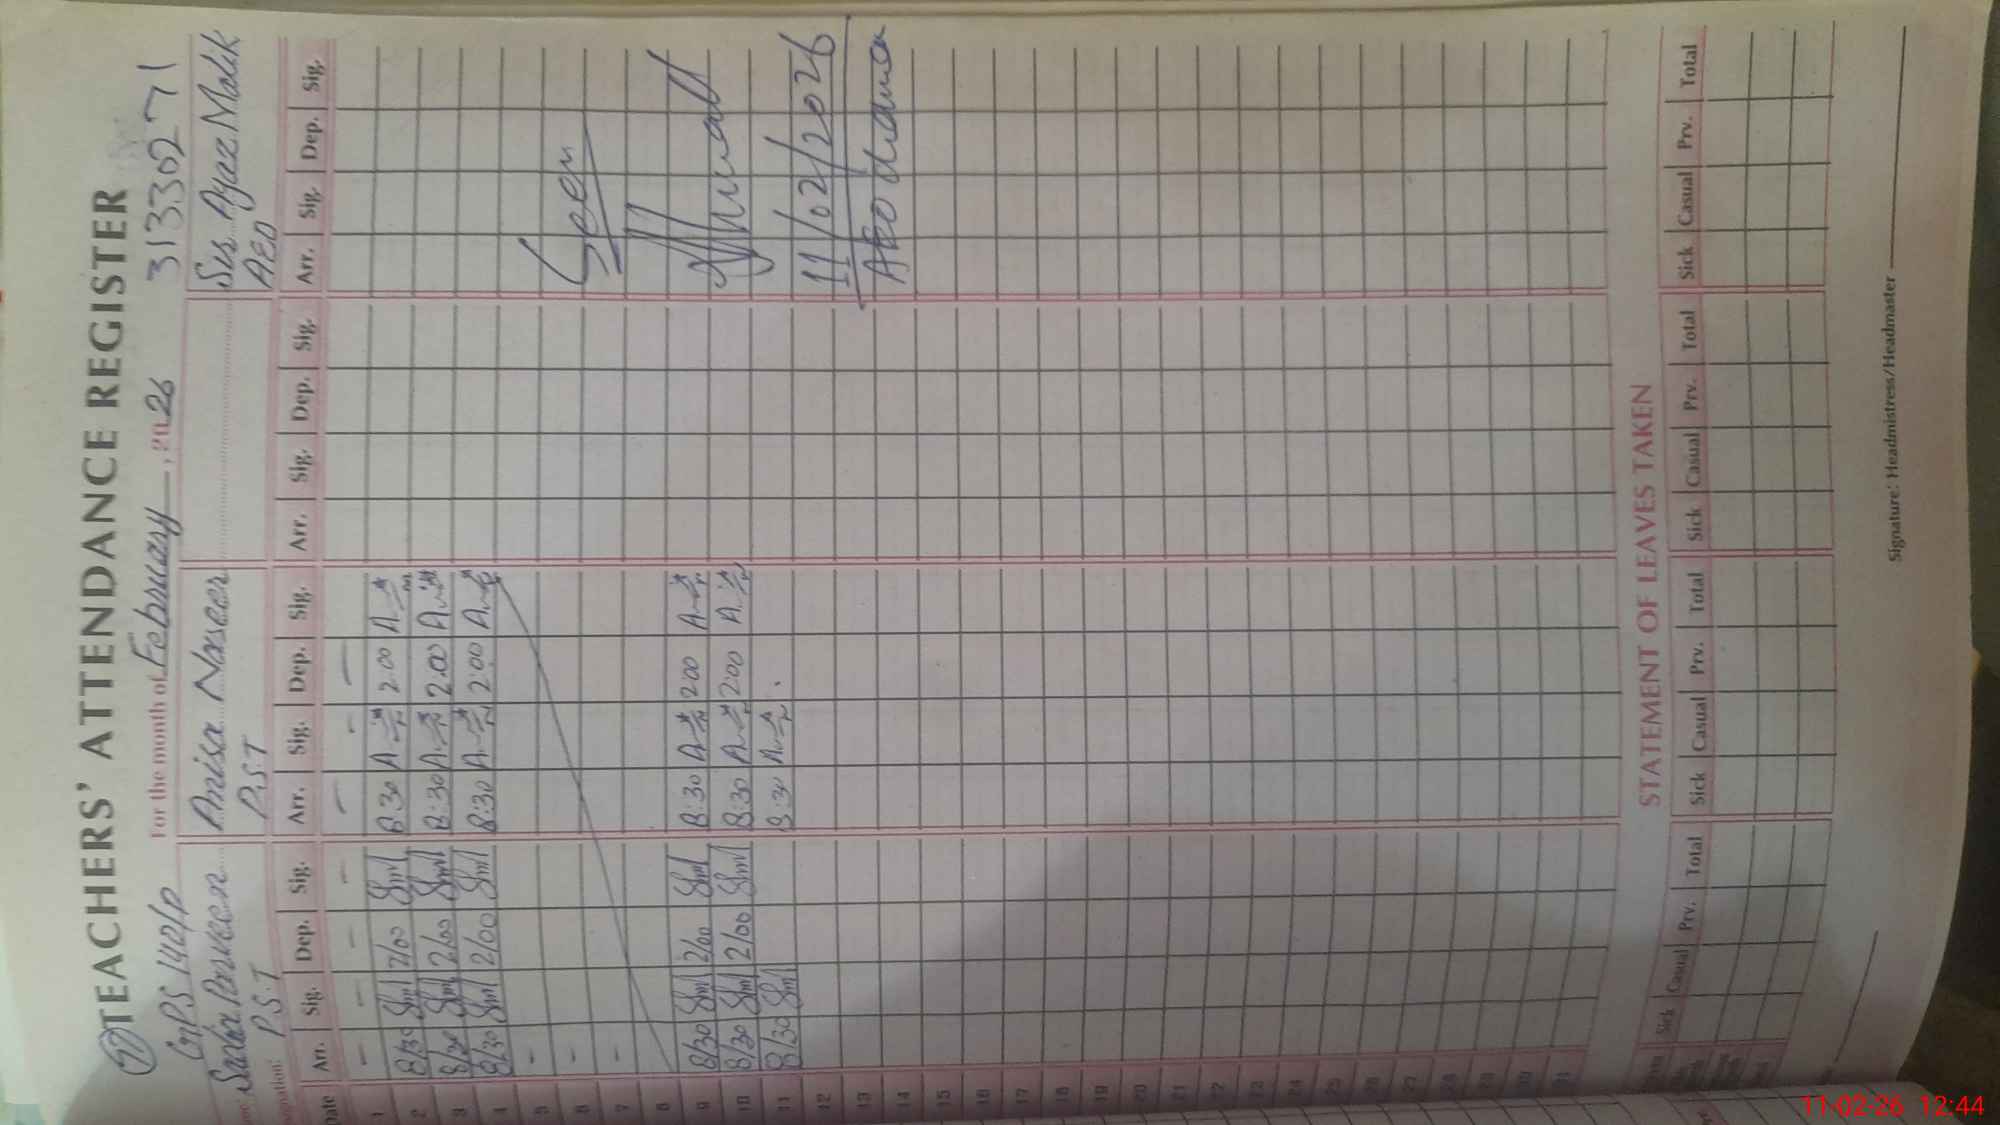 97 TEACHERS' ATTENDANCE REGISTER
GPS 140/P For the month of February, 2026 31330271
Sadia Parveen Anisa Naseer Sir Ayaz Malik
P.S.T P.S.T AEO
Date Arr. Sig. Dep. Sig. Arr. Sig. Dep. Sig. Arr. Sig. Dep. Sig. Arr. Sig. Dep. Sig.
1 - - - - - - -
2 8/30 2/00 8:30 2:00
3 8/30 2/00 8:30 2:00
4 8/30 2/00 8:30 2:00
5 -
6 - Seen
7 -
8
9 8/30 2/00 8:30 2:00
10 8/30 2/00 8:30 2:00
11 8/30 8:30
12 11/02/2026
13 AEO
14
15
16
17
18
19
20
21
22
23
24
25
26
27
28
29
30
31
STATEMENT OF LEAVES TAKEN
Sick Casual Prv. Total Sick Casual Prv. Total Sick Casual Prv. Total Sick Casual Prv. Total
Signature: Headmistress/Headmaster
11-02-26 12:44